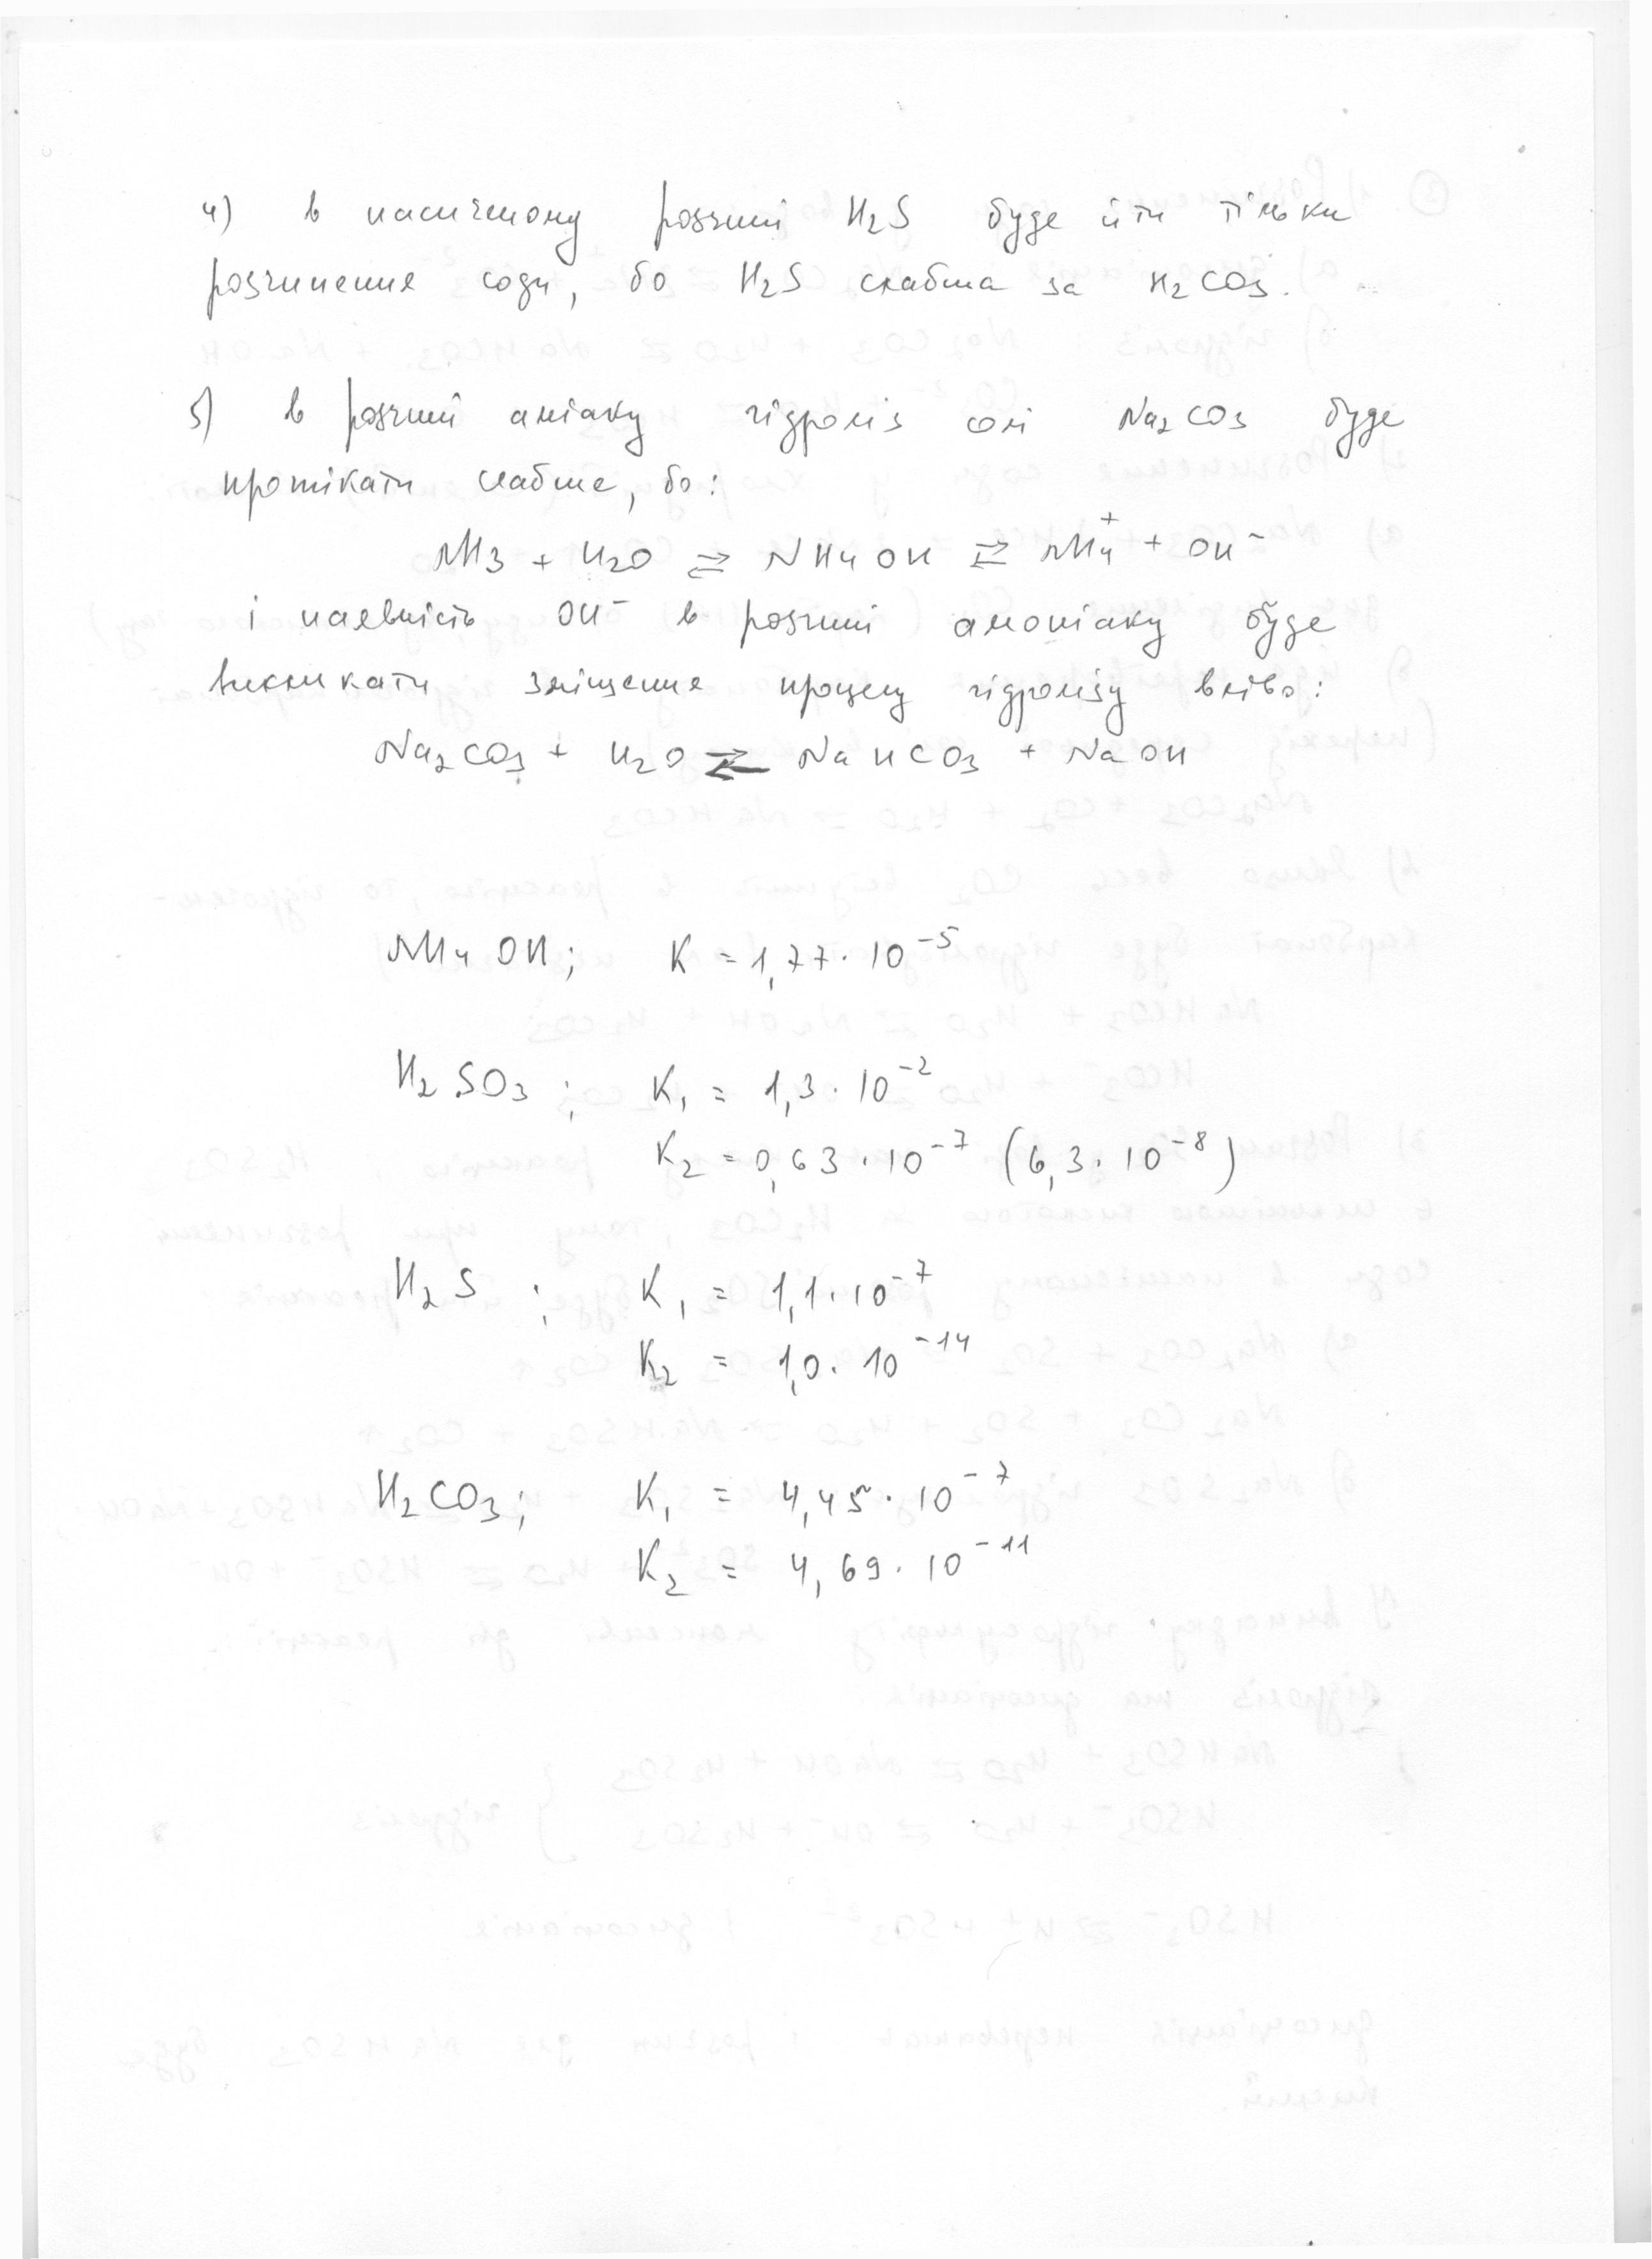 4) в насиченому розчині H₂S буде йти тільки
розчинення соди, бо H₂S слабша за H₂CO₃.
5) в розчині аміаку гідроліз солі Na₂CO₃ буде
протікати слабше, бо:
NH₃ + H₂O ⇄ NH₄OH ⇄ NH₄⁺ + OH⁻
і наявність OH⁻ в розчині амоніаку буде
викликати зміщення процесу гідролізу вліво:
Na₂CO₃ + H₂O ⇄ NaHCO₃ + NaOH
NH₄OH; K = 1,77·10⁻⁵
H₂SO₃; K₁ = 1,3·10⁻²
K₂ = 0,63·10⁻⁷ (6,3·10⁻⁸)
H₂S; K₁ = 1,1·10⁻⁷
K₂ = 1,0·10⁻¹⁴
H₂CO₃; K₁ = 4,45·10⁻⁷
K₂ = 4,69·10⁻¹¹